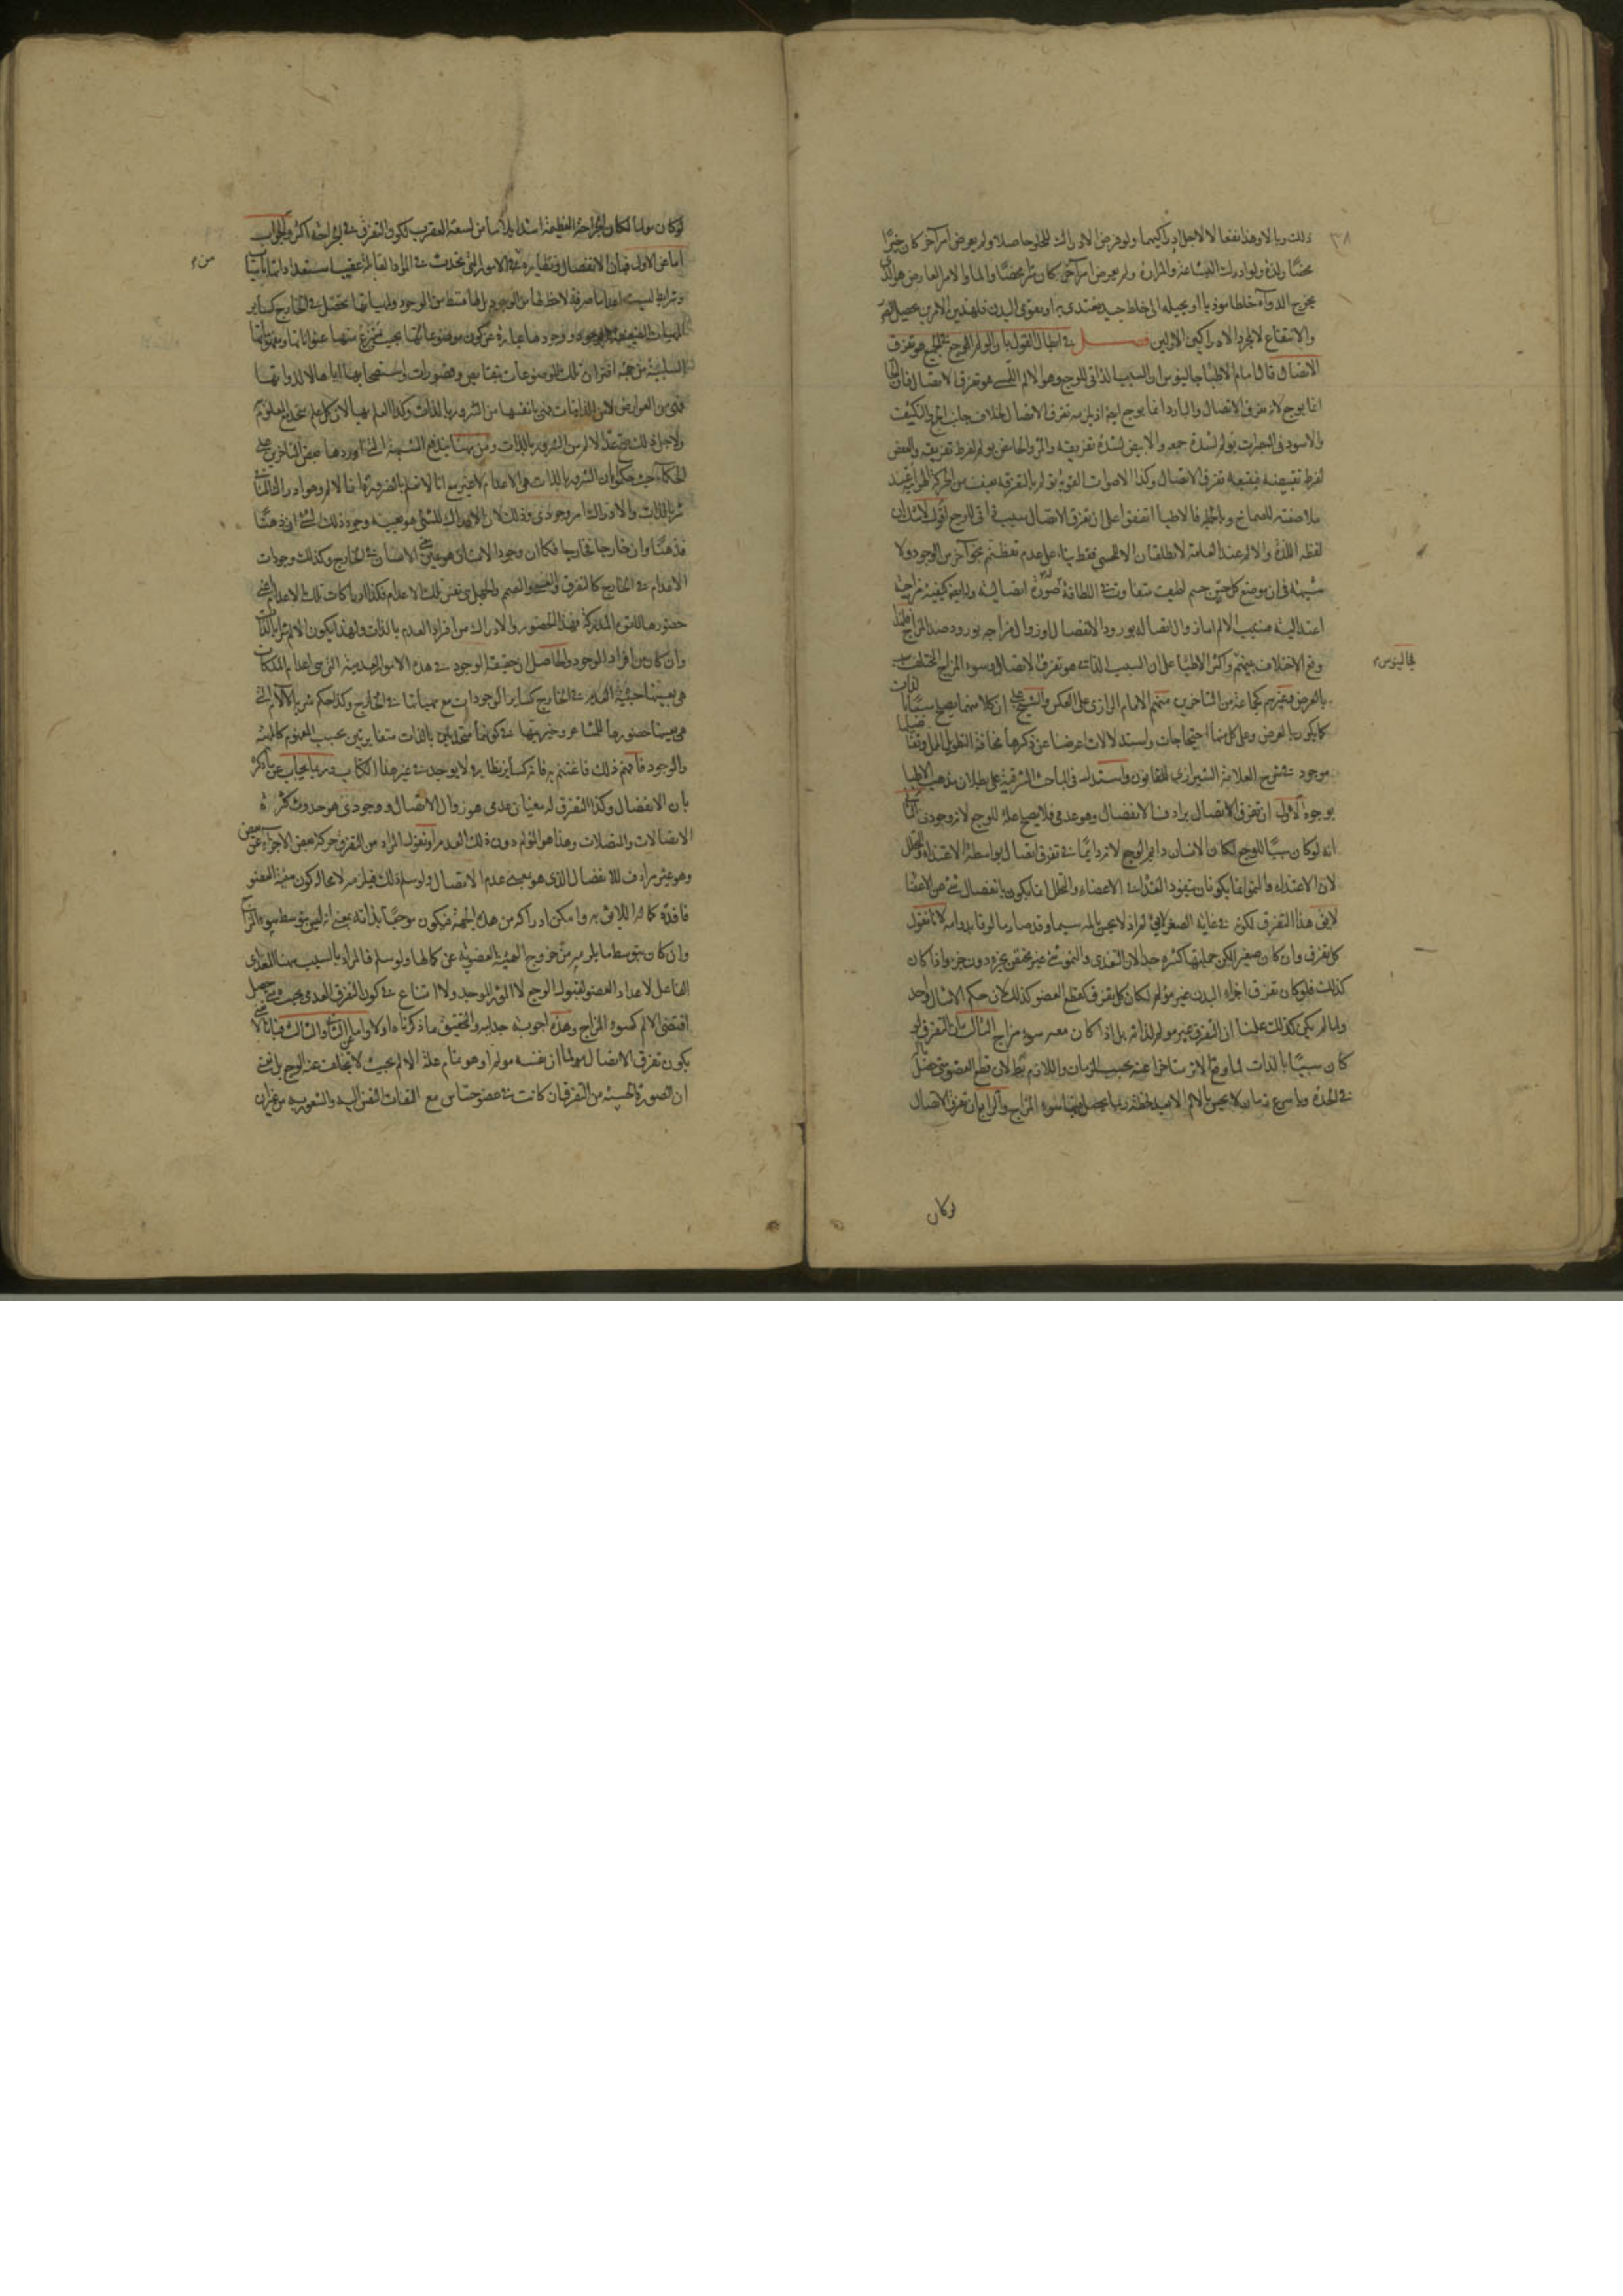 ٣٨
ذلك وبالا وهذا نفعا لا لاجل ادراكيهما ولو فرض الادراك للحلو حاصلا ولم يعرض امر آخر كان خيرًا
محضًا ولذة ولو ادركت البشاعة والمرارة ولم يعرض امر آخر كان شرا محضًا والما والامر العارض هو الذى
يخرج الدواء خلطا موذيا او يحيله الى خلط جيد يغتدى به او يقوى البدن فلهذين الامرين يحصل
والانتفاع لا لمجرد الادراكين الاولين فصل فى ابطال القول بان المولم الموجع فى الجميع هو تفرق
الاتصال قال امام الاطبا جالينوس ان السبب الذاتى للوجع وهو الالم اللمسى هو تفرق الاتصال فان الحار
انما يوجع لانه يفرق الاتصال والبارد انما يوجع ايضا اذ يلزمه تفرق الاتصال
والاسود فى المبصرات يولم لشدة جمعه والابيض لشدة تفريقه والمر والحامض يولم لفرط تفريقه والعفص
لفرط تقبيضه فيتبعه تفرق الاتصال وكذا الاصوات القوية تولم بالتفرق بعنف من الحركة الهوائية عند
ملاصقته للصماخ وبالجملة فالاطبا اتفقوا على ان تفرق الاتصال سبب ذاتى للوجع اقول لا شك ان
لفظه اللذة والالم عند العامة لا يطلقان الا للحسى فقط بناء على عدم تفطنهم بنحو آخر من الوجود ولا
شبهة فى ان موضع كل حس جسم لطيف متفاوت فى اللطافة له صورة اتصالية وله ايضا كيفية مزاجية
اعتدالية فسبب الالم اما زوال اتصاله بورود الانفصال او زوال مزاجه بورود ضد المزاج
وقع الاختلاف بينهم واكثر الاطبا على ان السبب الذاتى هو تفرق الاتصال وسوء المزاج المختلف سبب
بالعرض وغيرهم كجماعة من المتاخرين منهم الامام الرازى على العكس والشيخ على ان كلا منهما يصلح سببًا بالذات
كما يكون بالعرض وعلى كل منها احتجاجات واستدلالات اعرضنا عن ذكرها مخافة التطويل
موجود فى شرح العلامة الشيرازى للقانون واستدل فى المباحث المشرقية على بطلان مذهب الاطبا
بوجوه الاول ان تفرق الاتصال يرادف الانفصال وهو عدمى فلا يصلح علة للوجع لانه وجودى الثانى
انه لو كان سببًا للوجع لكان الانسان دايم الوجع لانه دايمًا فى تفرق اتصال بواسطة الاغتذاء والتحلل
لان الاغتذاء والنمو انما يكونان بنفوذ الغذا فى الاعضاء والتحلل انما يكون بانفصال شى من الاعضا
لا يق هذا التفرق لكونه فى غاية الصغر لا يحس بالمه سيما وقد صار مالوفا بدوامه لانا نقول
كل تفرق وان كان صغيرا لكن جملتها كثيرة جدا لان التغدى والنمو شى غير مختص بجزء دون جزء واذا كان
كذلك فلو كان تفرق اجزاء البدن غير مولم لكان كل تفرق كقطع العضو كذلك لان حكم الامثال واحد
ولما لم يكن كذلك علمنا ان التفرق غير مولم لذاته بل اذا كان معه سوء مزاج الثالث ان التفرق لو
كان سببًا بالذات لما وقع الاثر متاخرا عنه بحسب الزمان واللازم بط لان قطع العضو متى حصل بآلة
فى الحدة وباسرع زمان لا يحس بالالم الا بعد لحظة ربما يحصل فيها سوء المزاج والرابع ان تفرق الاتصال
لوكان
لو كان مولما لكان الجراحة العظيمة اشد ايلاما من لسعة العقرب لكون التفرق فى الجراحة اكثر والجواب
اما عن الاول فبان الانفصال ونظايره فى الامور التى تحدث فى المواد القابلة عقيب استعداداتها باسباب
وشرايط ليست اعداما صرفة لا حظ لها من الوجود بل لها قسط من الوجود وله ماهياتها تحصل فى الخارج كساير
الماهيات الضعيفة الوجود ووجودها عبارة عن كون موضوعاتها بحيث ينتزع منها عنواناتها ومفهوماتها
السلبية من جهة اقتران تلك الموضوعات بنقايص وقصورات واستصحابها اياها لا لذواتها
فهى من العوارض لا من الذاتيات فهى بانفسها من الشرور بالذات وكذا العلم بها لان كل علم متحد مع معلومه
ولاجل ذلك صح عد الالم من الشرور بالذات ومن ههنا يندفع الشبهة التى اوردها بعض المتاخرين على
الحكماء حيث حكموا بان الشرور بالذات هى الاعدام لا غير مع انا لا نعلم بالضرورة ان الالم وهو ادراك المنافى
شر بالذات والادراك امر وجودى وذلك لان الادراك للشى هو بعينه وجود ذلك الشى ان ذهنًا
فذهنًا وان خارجا فخارجا فكما ان وجود الانسان هو عين الانسان فى الخارج وكذلك وجودات
الاعدام فى الخارج كالتفرق والعمى والصمم والجهل هى نفس تلك الاعدام فكذا ادراكات تلك الاعدام اعنى
حضورها للقوة المدركة فهذا الحضور والادراك من افراد العدم بالذات ولهذا يكون الالم شرا بالذات
وان كان من افراد الوجود والحاصل ان حقيقة الوجود فى هذه الامور العدمية التى هى اعدام الملكات
هى بعينها حيثية العدم فى الخارج كساير الوجودات مع مهياتها فى الخارج وكذا حكم شرية الآلام التى
هى بعينها حضورها للمشاعر وخيريتها فى كونهما متحدين بالذات متغايرتين بحسب المفهوم كالمهية
والوجود فافهم ذلك فاغتنم به فانه كساير نظايره لا يوجد فى غير هذا الكتاب وربما يجاب عن ما ذكر
بان الانفصال وكذا التفرق له معنيان عدمى هو زوال الاتصال ووجودى هو حدوث كثرة
الاتصالات والمتصلات وهذا هو المولم دون ذلك العدم او نقول المراد من التفرق حركة بعض الاجزاء عن بعض
وهو غير مرادف للانفصال الذى هو بمعنى عدم الاتصال ولو سلم ذلك فيلزمه لا محالة كون هيئة العضو
فاقدة كماله اللايق به وامكن ادراكه من هذه الجهة فيكون موجبًا بذاته بمعنى انه ليس بتوسط سوء المزاج
وان كان بتوسط ما يلزمه من خروج الهيئة العضوية عن كمالها ولو سلم فالمراد بالسبب ههنا المعدى
الفاعل لاعداد العضو لقبول الوجع لا المؤثر الموجد ولا امتناع فى كون التفرق العدمى بحيث متى حصل
اقتضى الالم كسوء المزاج وهذه اجوبة جدلية والتحقيق ما ذكرناه اولا واما عن الثانى والثالث فبانا لا نعنى
بكون تفرق الاتصال مولما ان نفسه مولم او هو تمام علة الالم بحيث لا يتخلف عنه الوجع بل نعنى
ان الصورة الحسية من التفرق ان كانت فى عضو حساس مع التفات النفس اليه والشعور به من غير ان